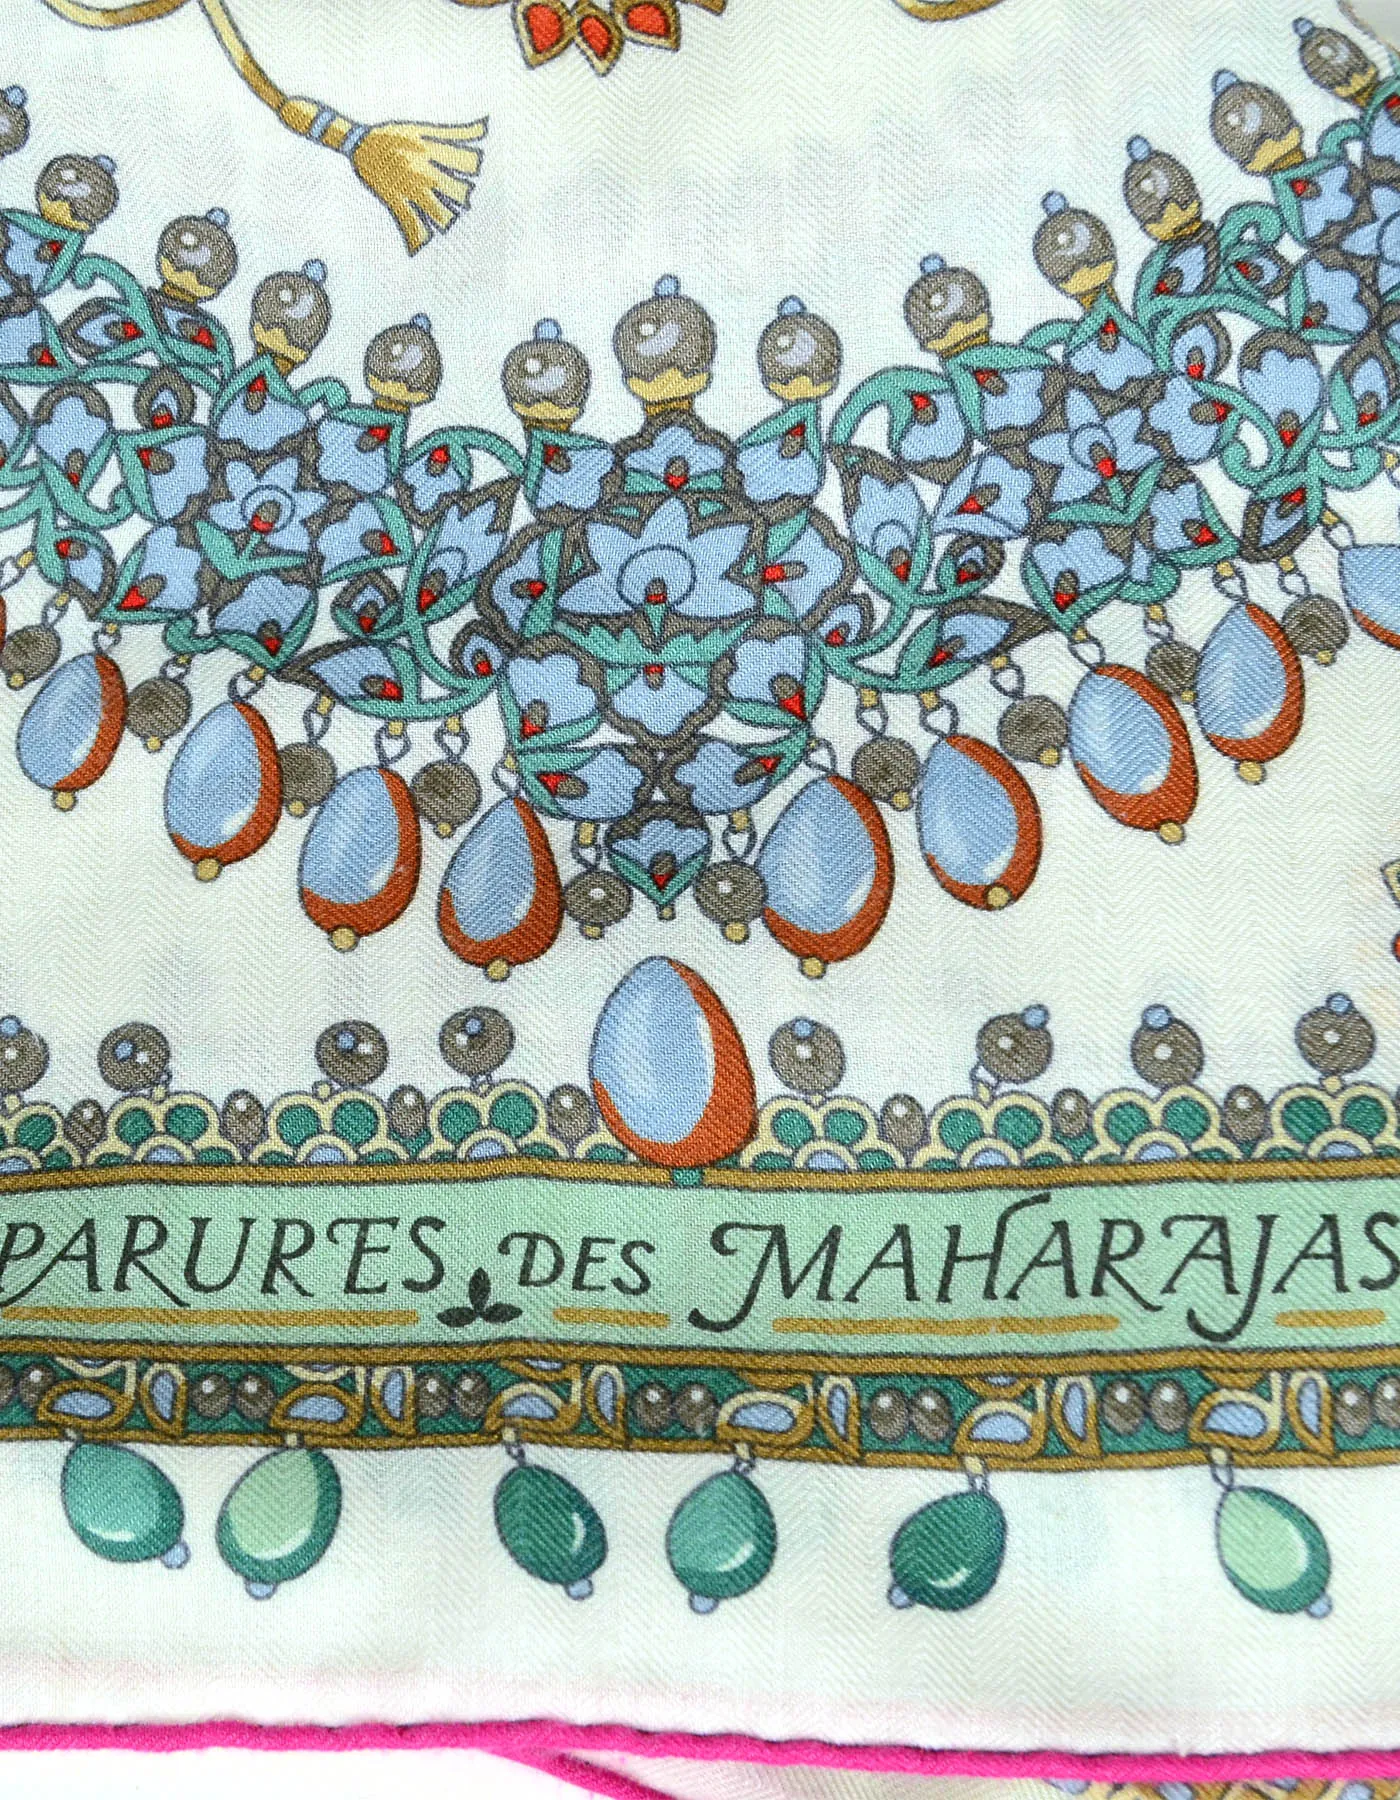 PARURES DES MAHARAJAS